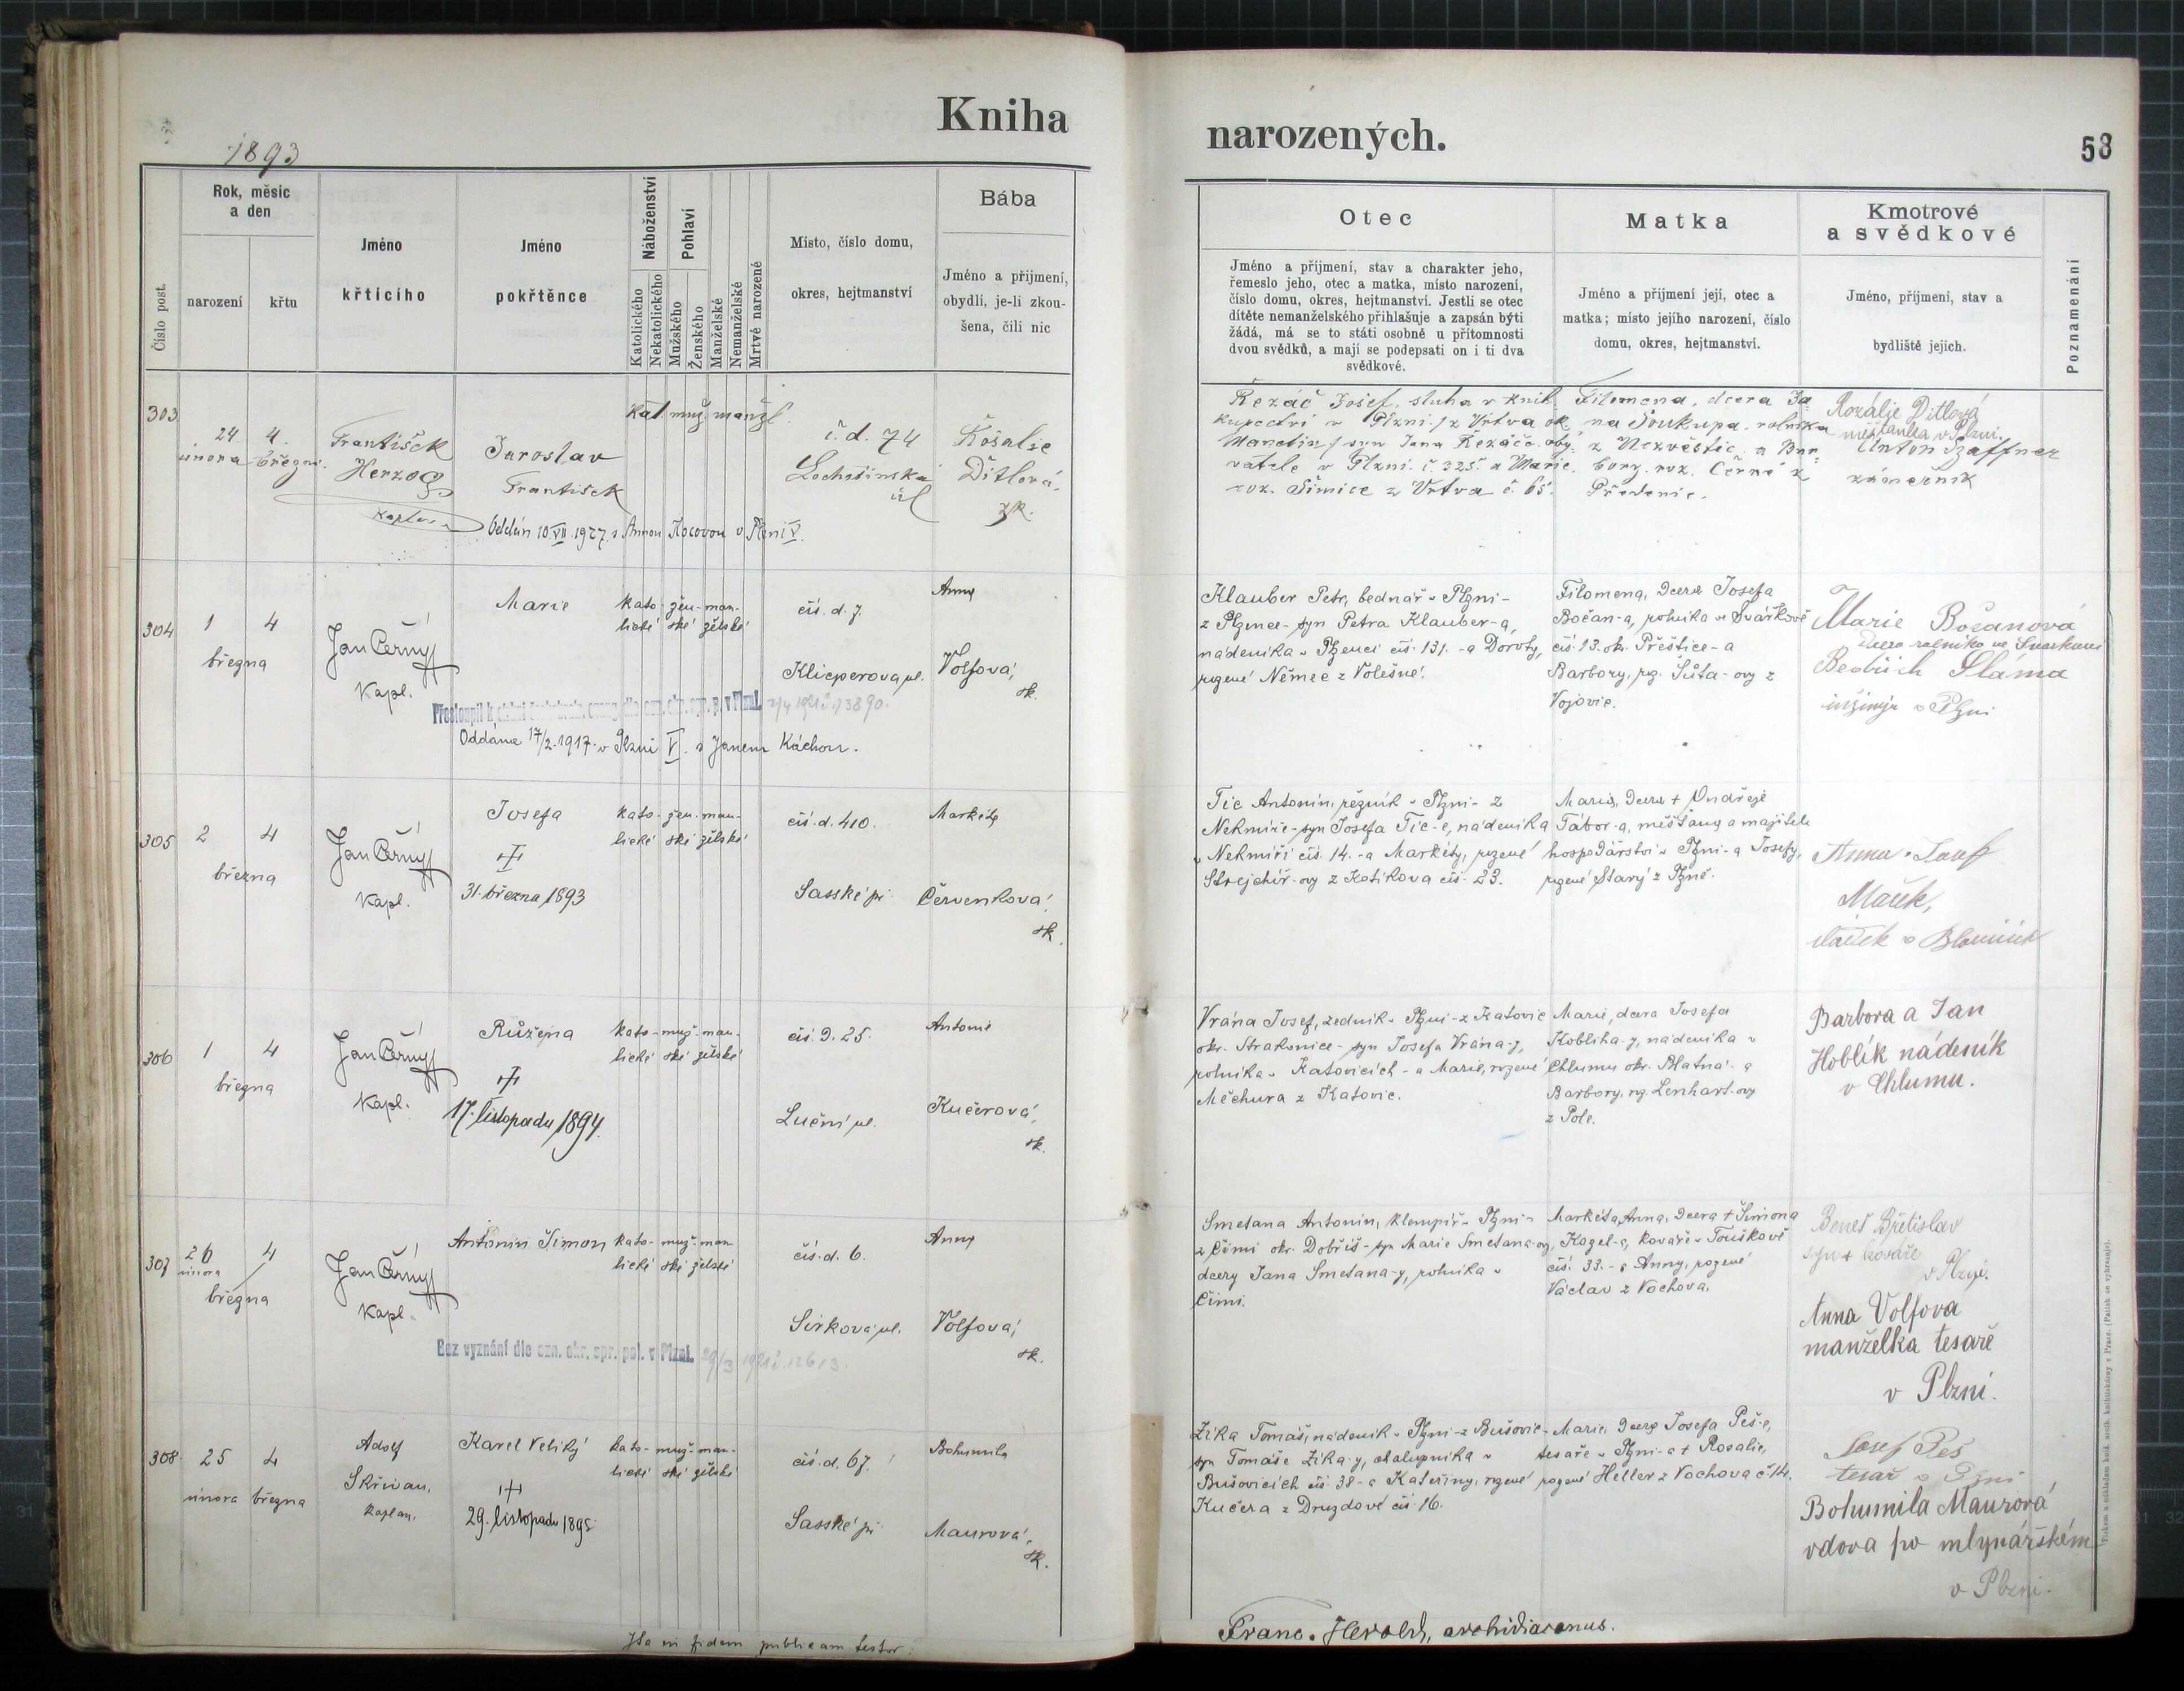 Kniha
1893
Číslo post.
Rok, měsíc
a den
narození
křtu
Jméno
křtícího
Jméno
pokřtěnce
Náboženství
Katolického
Nekatolického
Pohlaví
Mužského
Ženského
Manželské
Nemanželské
Mrtvě narozené
Místo, číslo domu,
okres, hejtmanství
Bába
Jméno a přijmení,
obydlí, je-li zkou-
šena, čili nic
303
24 4.
února března
František
Herzog
kaplan
Jaroslav
František
Oddán 10.VII.1927. s Annou Kocovou v Plzni V.
kat. muž. manžl.
č. d. 74
Lochotínská
ul
Rosalie
Ditlová,
zk.
304
1 4
března
Jan Černý
kapl.
Marie
kato- žen- man-
lické ské želské
čís. d. 7.
Klicperova ul.
Anna
Volfová,
zk.
Oddána 17/2. 1917. v Plzni V. s Janem Káchou.
305
2 4
března
Jan Černý
kapl.
Josefa
31. března 1893
kato- žen- man-
lické ské želské
čís. d. 410.
Sasské př.
Markéta
Červenková,
zk.
306
1 4
března
Jan Černý
kapl.
Růžena
17. listopadu 1894.
kato- muž- man-
lické ské želské
čís. d. 25.
Luční ul.
Antonie
Kučerová,
zk.
307
26 4
února
března
Jan Černý
kapl.
Antonín Šimon
kato- muž- man-
lické ské želské
čís. d. 6.
Sirková ul.
Anna
Volfová,
zk.
Bez vyznání dle ozn. okr. spr. pol. v Plzni. 29/3 1921 č. 12613.
308
25 4
února března
Adolf
Skřivan,
kaplan.
Karel Veliký
29. listopadu 1895
kato- muž- man-
lické ské želské
čís. d. 67.
Sasské př.
Bohumila
Maurová,
zk.
Ita in fidem publicam testor:
narozených.
58
Otec
Jméno a příjmení, stav a charakter jeho,
řemeslo jeho, otec a matka, místo narození,
číslo domu, okres, hejtmanství. Jestli se otec
dítěte nemanželského přihlašuje a zapsán býti
žádá, má se to státi osobně u přítomnosti
dvou svědků, a mají se podepsati on i ti dva
svědkové.
Matka
Jméno a přijmení její, otec a
matka; místo jejího narození, číslo
domu, okres, hejtmanství.
Kmotrové
a svědkové
Jméno, příjmení, stav a
bydliště jejich.
Poznamenání
Řezáč Josef, sluha v knih-
kupectví v Plzni z Vrtva ok.
Manetín syn Jana Řezáče oby-
vatele v Plzni č. 325. a Marie
roz. Šimice z Vrtva č. 65.
Filomena, dcera Ja-
na Soukupa, rolníka
z Nezvěstic, a Bar-
bory, roz. Černé z
Předenic.
Rozálie Ditlová
měšťanka v Plzni.
Anton Szaffner
zámečník
Klauber Petr, bednář v Plzni-
z Plzence- syn Petra Klauber-a,
nádeníka v Plzenci čís. 131. -a Doroty,
rozené Němec z Volešné.
Filomena, dcera Josefa
Bočan-a, rolníka ve Švářkově
čís. 13. ok. Přeštice-a
Barbory, roz. Šůta-ovy z
Vojovic.
Marie Bočanová
dcera rolníka ve Svarkově
Bedřich Sláma
inžinýr v Plzni
Tic Antonín, řezník v Plzni- z
Nekmíře- syn Josefa Tic-e, nádeníka
v Nekmíři čís. 14. -a Markéty, rozené
Strejchíř-ovy z Kotíkova čís. 23.
Marie, dcera + Ondřeje
Tábor-a, měšťana a majitele
hospodářství v Plzni-a Josefy,
rozené Starý z Plzně.
Anna Josef
Mašek,
Vrána Josef, zedník v Plzni- z Katovic
okr. Strakonice- syn Josefa Vrána-y,
rolníka v Katovicích - a Marie, rozené
Měchura z Katovic.
Marie, dcera Josefa
Kobliha-y, nádeníka v
Chlumu okr. Blatná- a
Barbory, roz. Lenhart-ovy
z Pole.
Barbora a Jan
Hoblík nádeník
v Chlumu.
Smetana Antonín, klempíř v Plzni-
z Čími okr. Dobříš- syn Marie Smetana-ovy,
dcery Jana Smetana-y, rolníka v
Čími.
Markéta Anna, dcera + Šimona
Kogel-a, kováře v Touškově
čís. 33. - a Anny, rozené
Václav z Vochova.
Beneš Břetislav
syn + kováře
v Plzni.
Anna Volfova
manželka tesaře
v Plzni.
Žíka Tomáš, nádeník v Plzni- z Bušovic-
syn Tomáše Žíka-y, chalupníka v
Bušovicích čís. 38- a Kateřiny, rozené
Kučera z Druzdové čís. 16.
Marie, dcera Josefa Peš-e,
tesaře v Plzni-a + Rosalie,
rozené Heller z Vochova č. 14.
Josef Peš
tesař v Plzni
Bohumila Maurová
vdova po mlynářském
v Plzni.
Franc. Herold, archidiaconus.